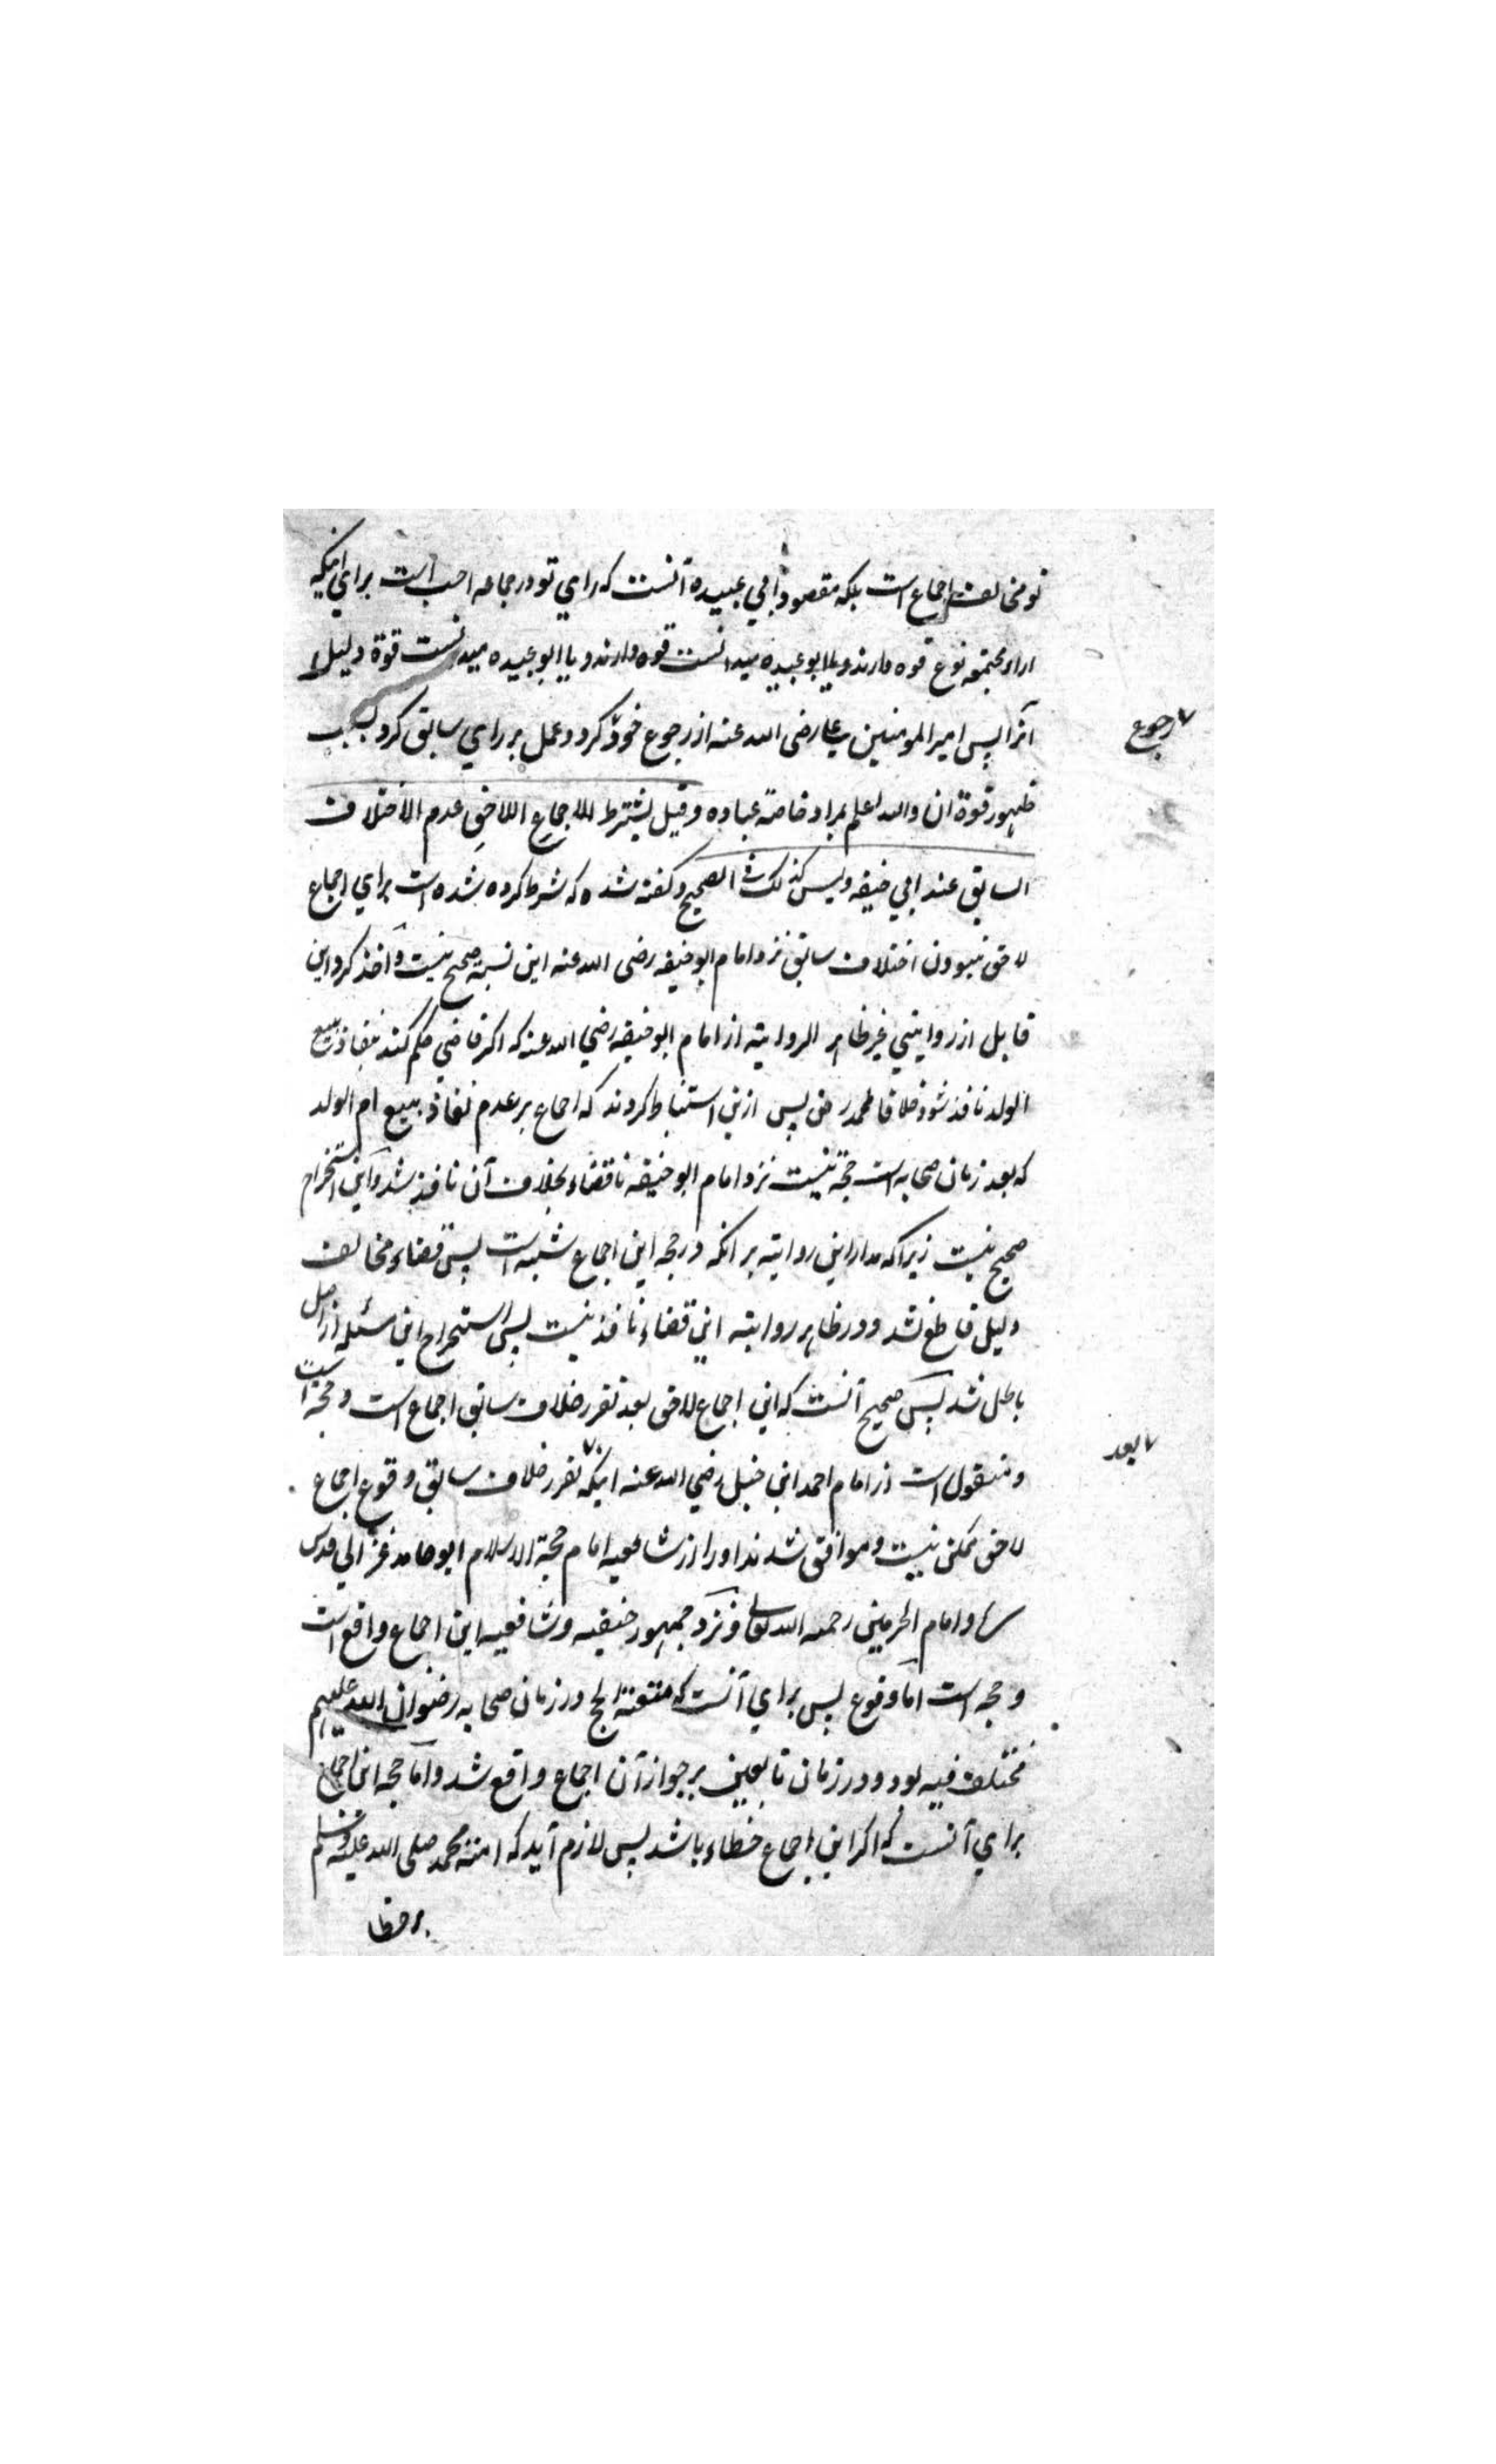 تو مخالف اجماع است بلکه مقصود ابی عبیده آنست که رای تو در جماعه احب است برای اینکه
اراء مجتمعه نوع قوه دارند و یا ابو عبیده میدانست قوه دارند و یا ابو عبیده میدنست قوة دلیل
آنرا پس امیر المومنین علی رضی الله عنه از رجوع خود کرد و عمل بر رای سابق کرد بسبب
رجوع
ظهور قوة ان والله اعلم بمراد خاصة عباده وقیل یشترط للاجماع اللاحق عدم الاختلاف
السابق عند ابی حنیفه ولیس کذلک فی الصحیح و کفته شده که شرط کرده شده است برای اجماع
لاحق نبودن اختلاف سابق نزد امام ابو حنیفه رضی الله عنه این نسبة صحیح نیست و اخذ کرد این
قایل از روایتی غیر ظاهر الروایة از امام ابو حنیفه رضی الله عنه که اکر قاضی حکم کند بنفاذ بیع
الولد نافذ شود خلافا لمحمد رض پس ازین استنباط کردند که اجماع بر عدم نفاذ بیع ام الولد
که بعد زمان صحابه است حجة نیست نزد امام ابو حنیفه تا قضاء بخلاف آن نافذ شد و این استخراج
صحیح نیست زیرا که مدار این روایته بر انکه در حجه این اجماع شبه است پس قضاء مخالف
دلیل قاطع نشد و در ظاهر روایته این قضاء نافذ نیست پس استخراج این مسئله از اصل
باطل شد پس صحیح آنست که این اجماع لاحق بعد تقرر خلاف سابق اجماع است و حجة است
و منقول است از امام احمد ابن حنبل رضی الله عنه اینکه تقرر خلاف سابق وقوع اجماع
بعد
لاحق ممکن نیست و موافق شدند او را از شافعیه امام حجة الاسلام ابو حامد غزالی قدس
سره و امام الحرمین رحمه الله تعالی و نزد جمهور حنیفه و شافعیه این اجماع واقع است
و حجه است اما وقوع پس برای آنست که متعة الحج در زمان صحابه رضوان الله علیهم
مختلف فیه بود و در زمان تابعین بر جواز آن اجماع واقع شد و اما حجه این اجماع
برای آنست که اکر این اجماع خطاء باشد پس لازم آید که امة محمد صلی الله علیه وسلم
بر خطا